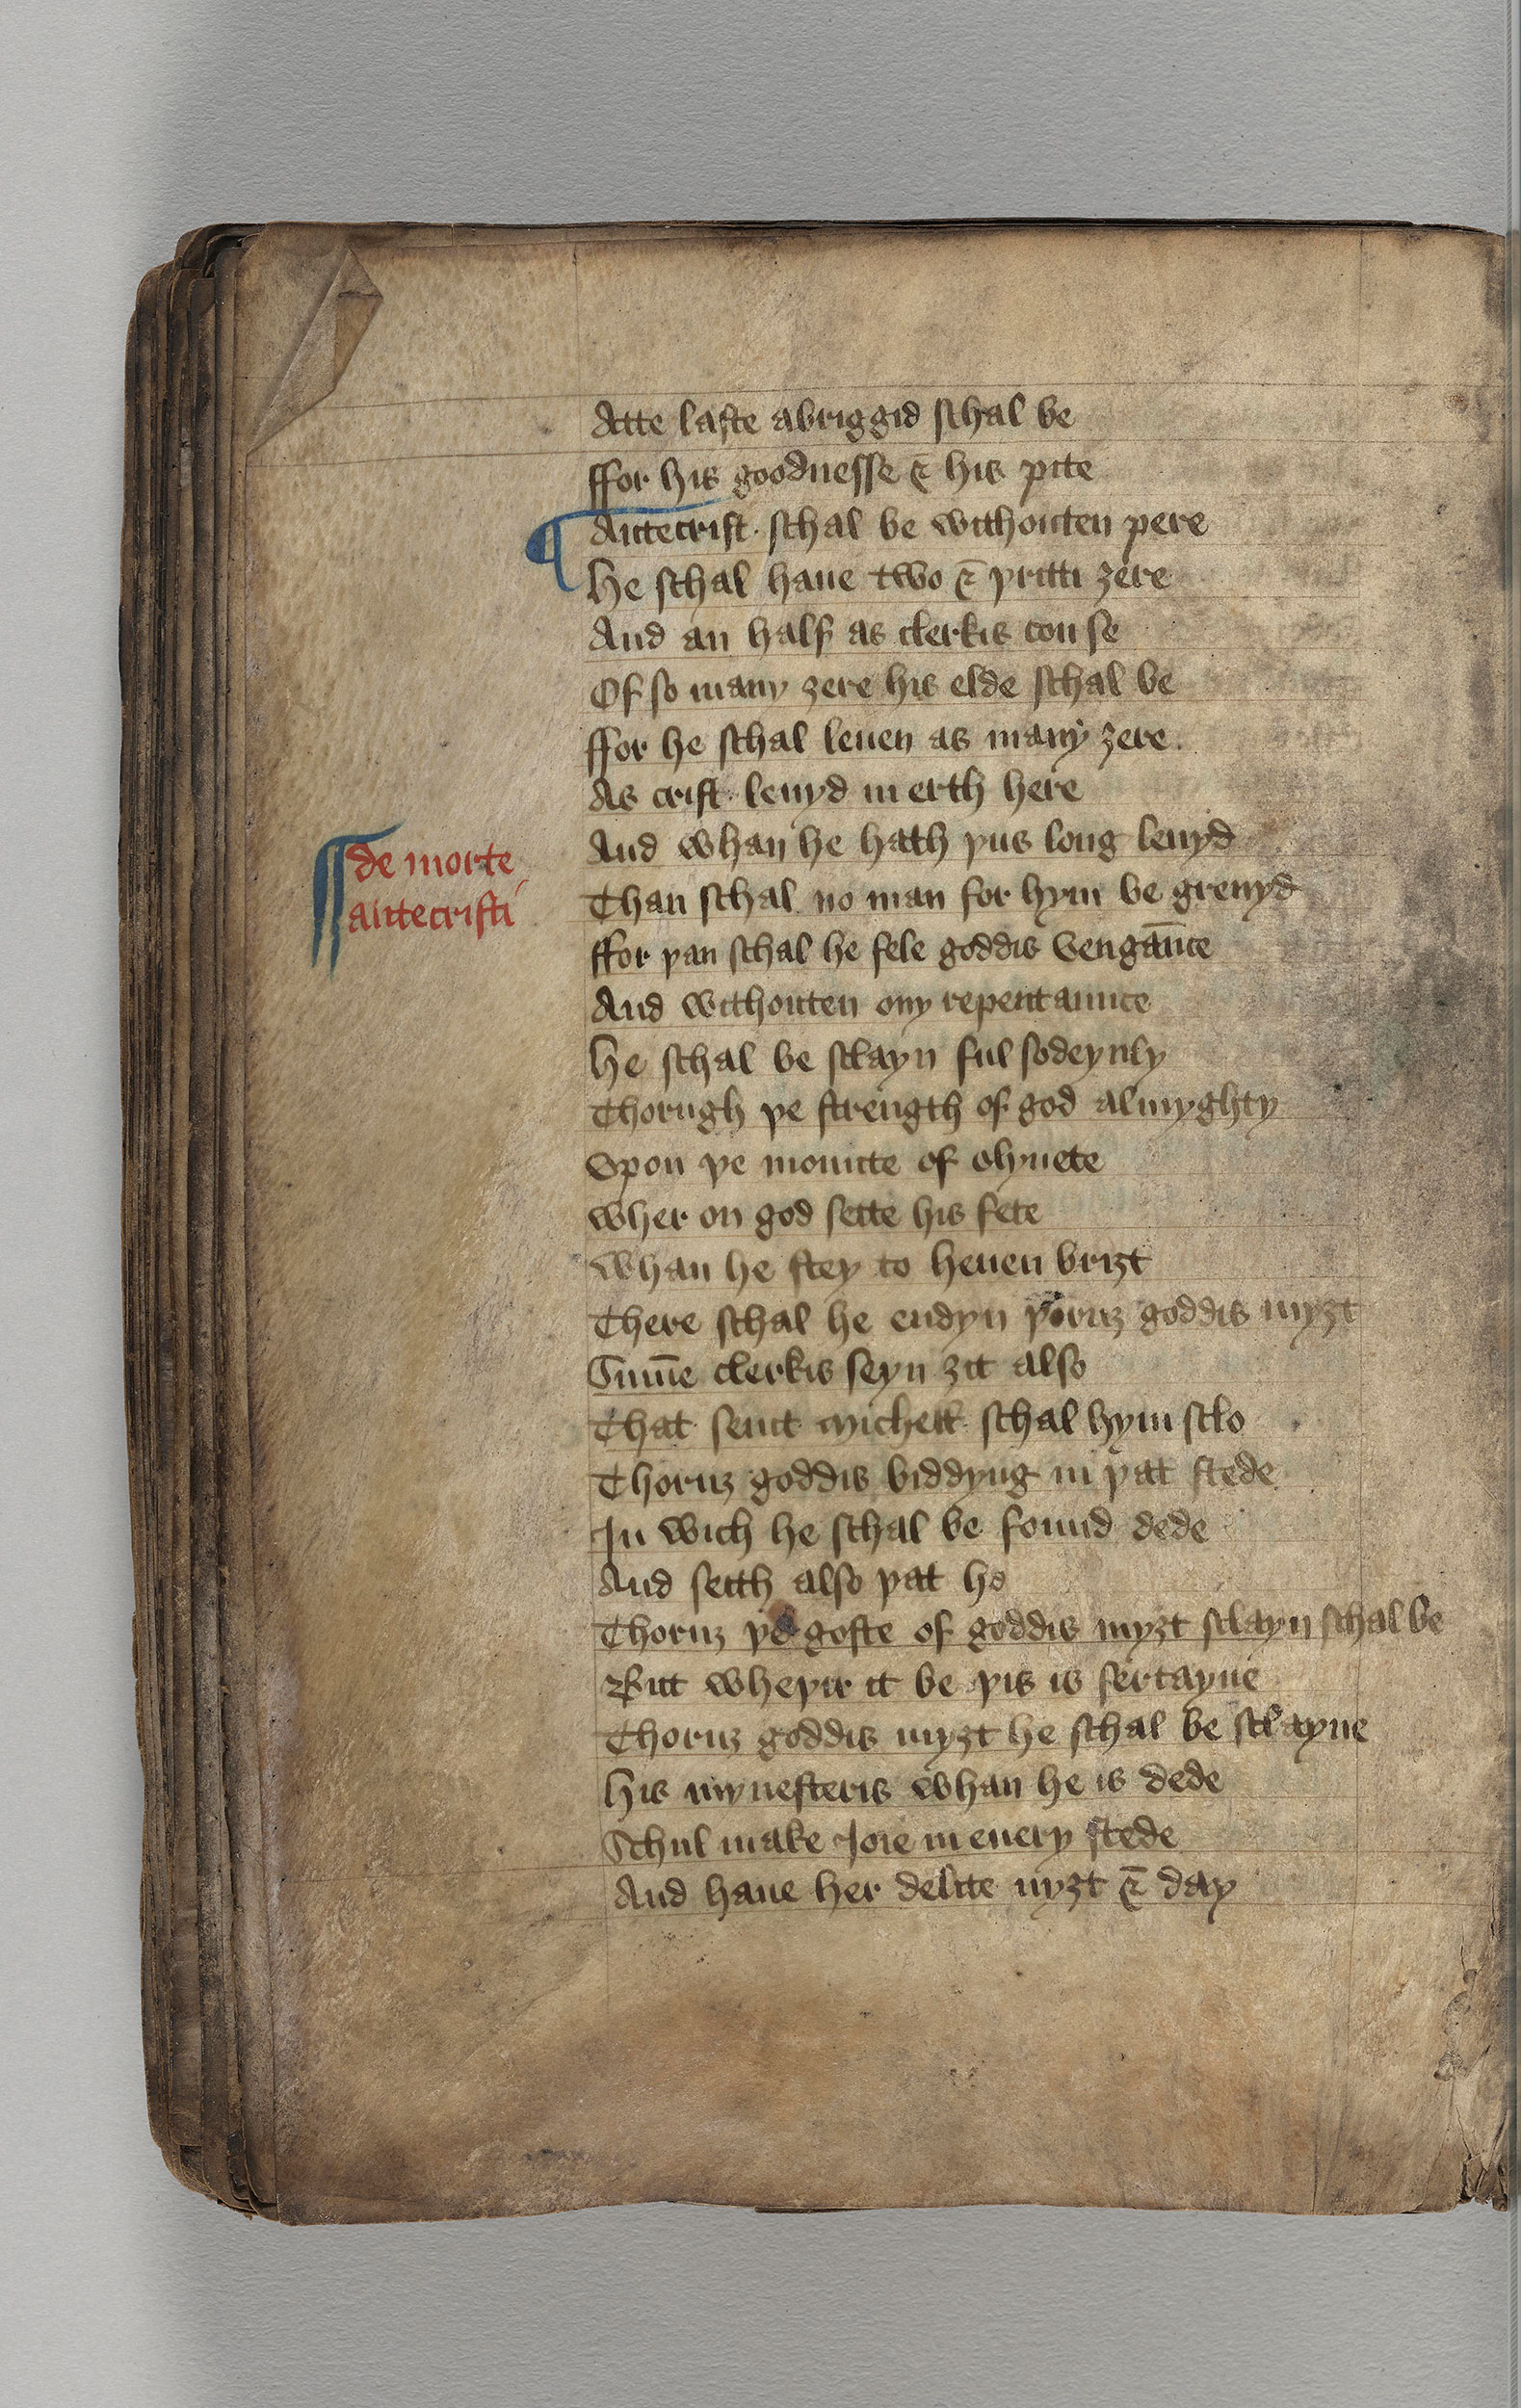 Atte laste abriggid schal be
ffor his goodnesse & his pite
¶ Antecrist schal be withouten pere
He schal haue two & þritti ȝere
And an half as clerkis con se
Of so many ȝere his elde schal be
ffor he schal leuen as many ȝere
As crist leuyd in erth here
And whan he hath þus long leuyd
¶ de morte
antecristi
Than schal no man for hym be greuyd
ffor þan schal he fele goddis vengāūce
And withouten ony repentaunce
He schal be sclayn ful sodeynly
Thorugh þe strength of god almyghty
Vpon þe mounte of olyuete
wher on god sette his fete
whan he stey to heuen briȝt
There schal he endyn þoruȝ goddis myȝt
Summe clerkis seyn ȝit also
That seint Michell schal hym sclo
Thoruȝ goddis biddyng in þat stede
In wich he schal be found dede
And seith also þat he
Thoruȝ þe goste of goddis myȝt sclayn schal be
But wheþir it be þis is sertayne
Thoruȝ goddis myȝt he schal be sclayne
His mynesteris whan he is dede
Schul make Ioie in euery stede
And haue her delite nyȝt & day